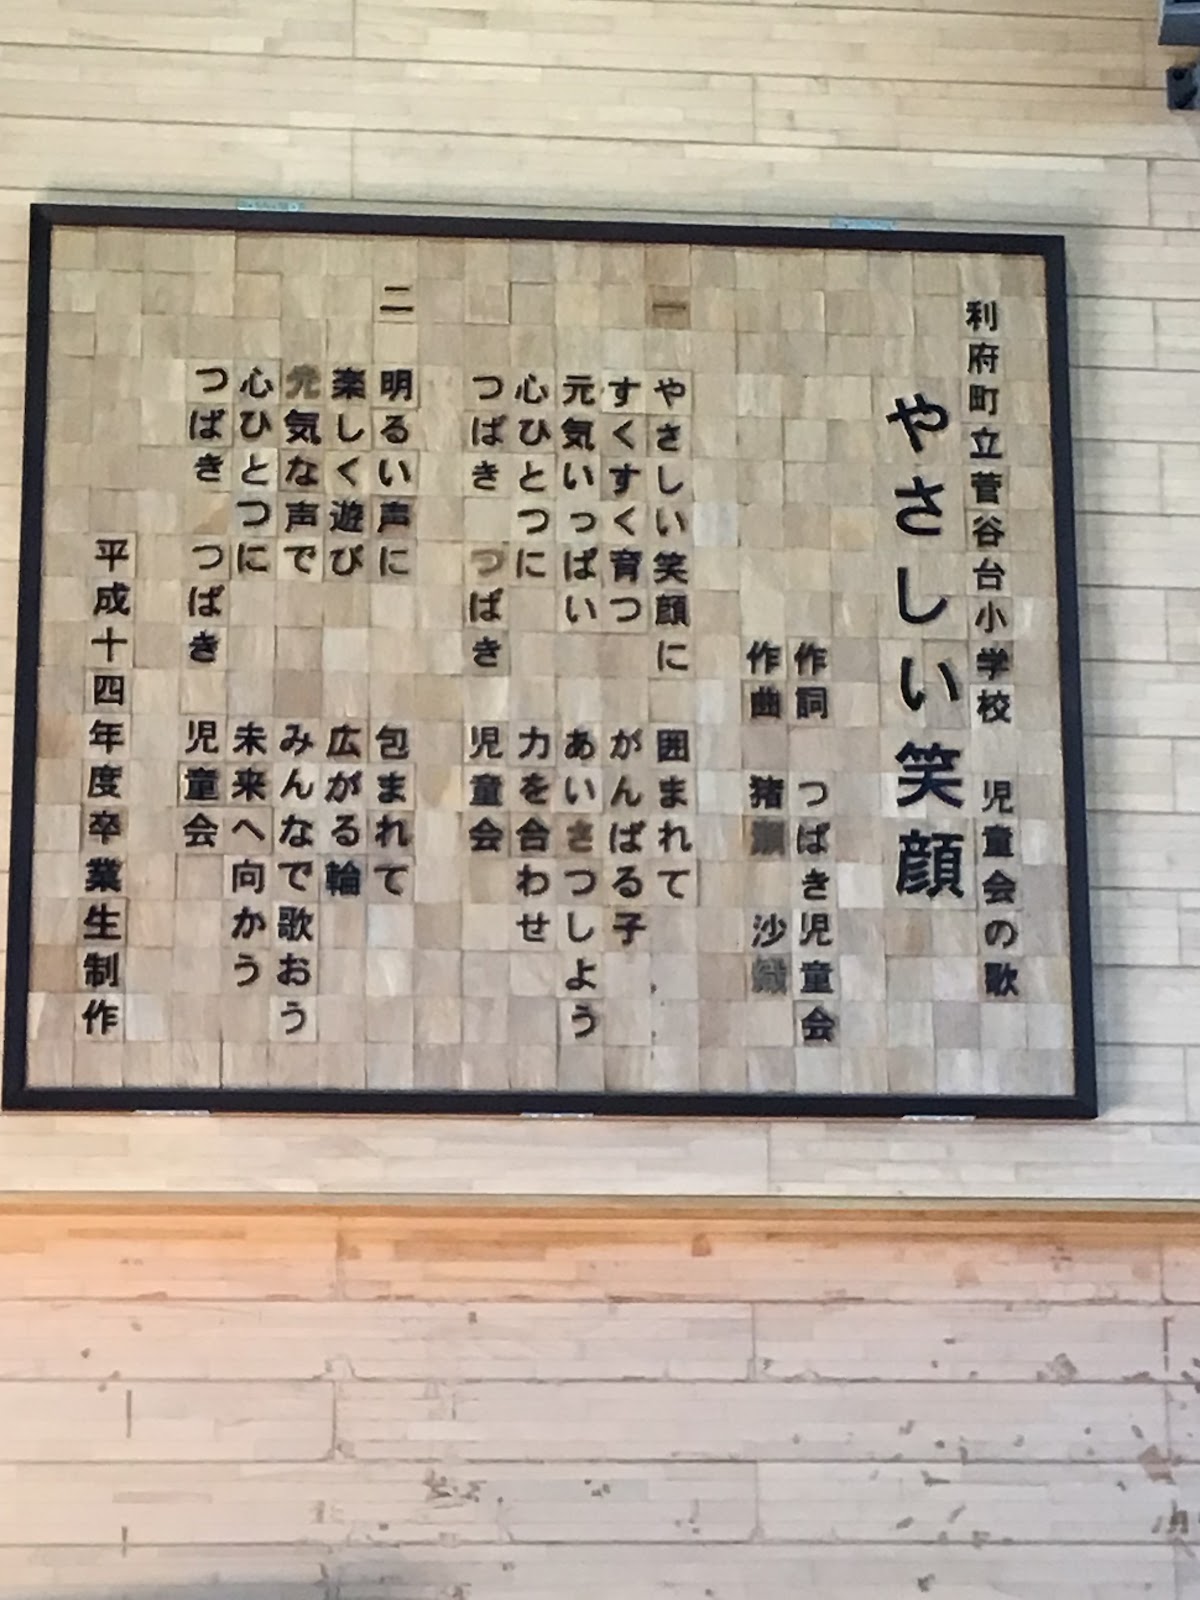 利府町立菅谷台小学校 児童会の歌
やさしい笑顔
作詞 つばき児童会
作曲 猪瀬 沙織
一 やさしい笑顔に 囲まれて
すくすく育つ がんばる子
元気いっぱい あいさつしよう
心ひとつに 力を合わせ
つばき つばき 児童会
二 明るい声に 包まれて
楽しく遊び 広がる輪
元気な声で みんなで歌おう
心ひとつに 未来へ向かう
つばき つばき 児童会
平成十四年度卒業生制作